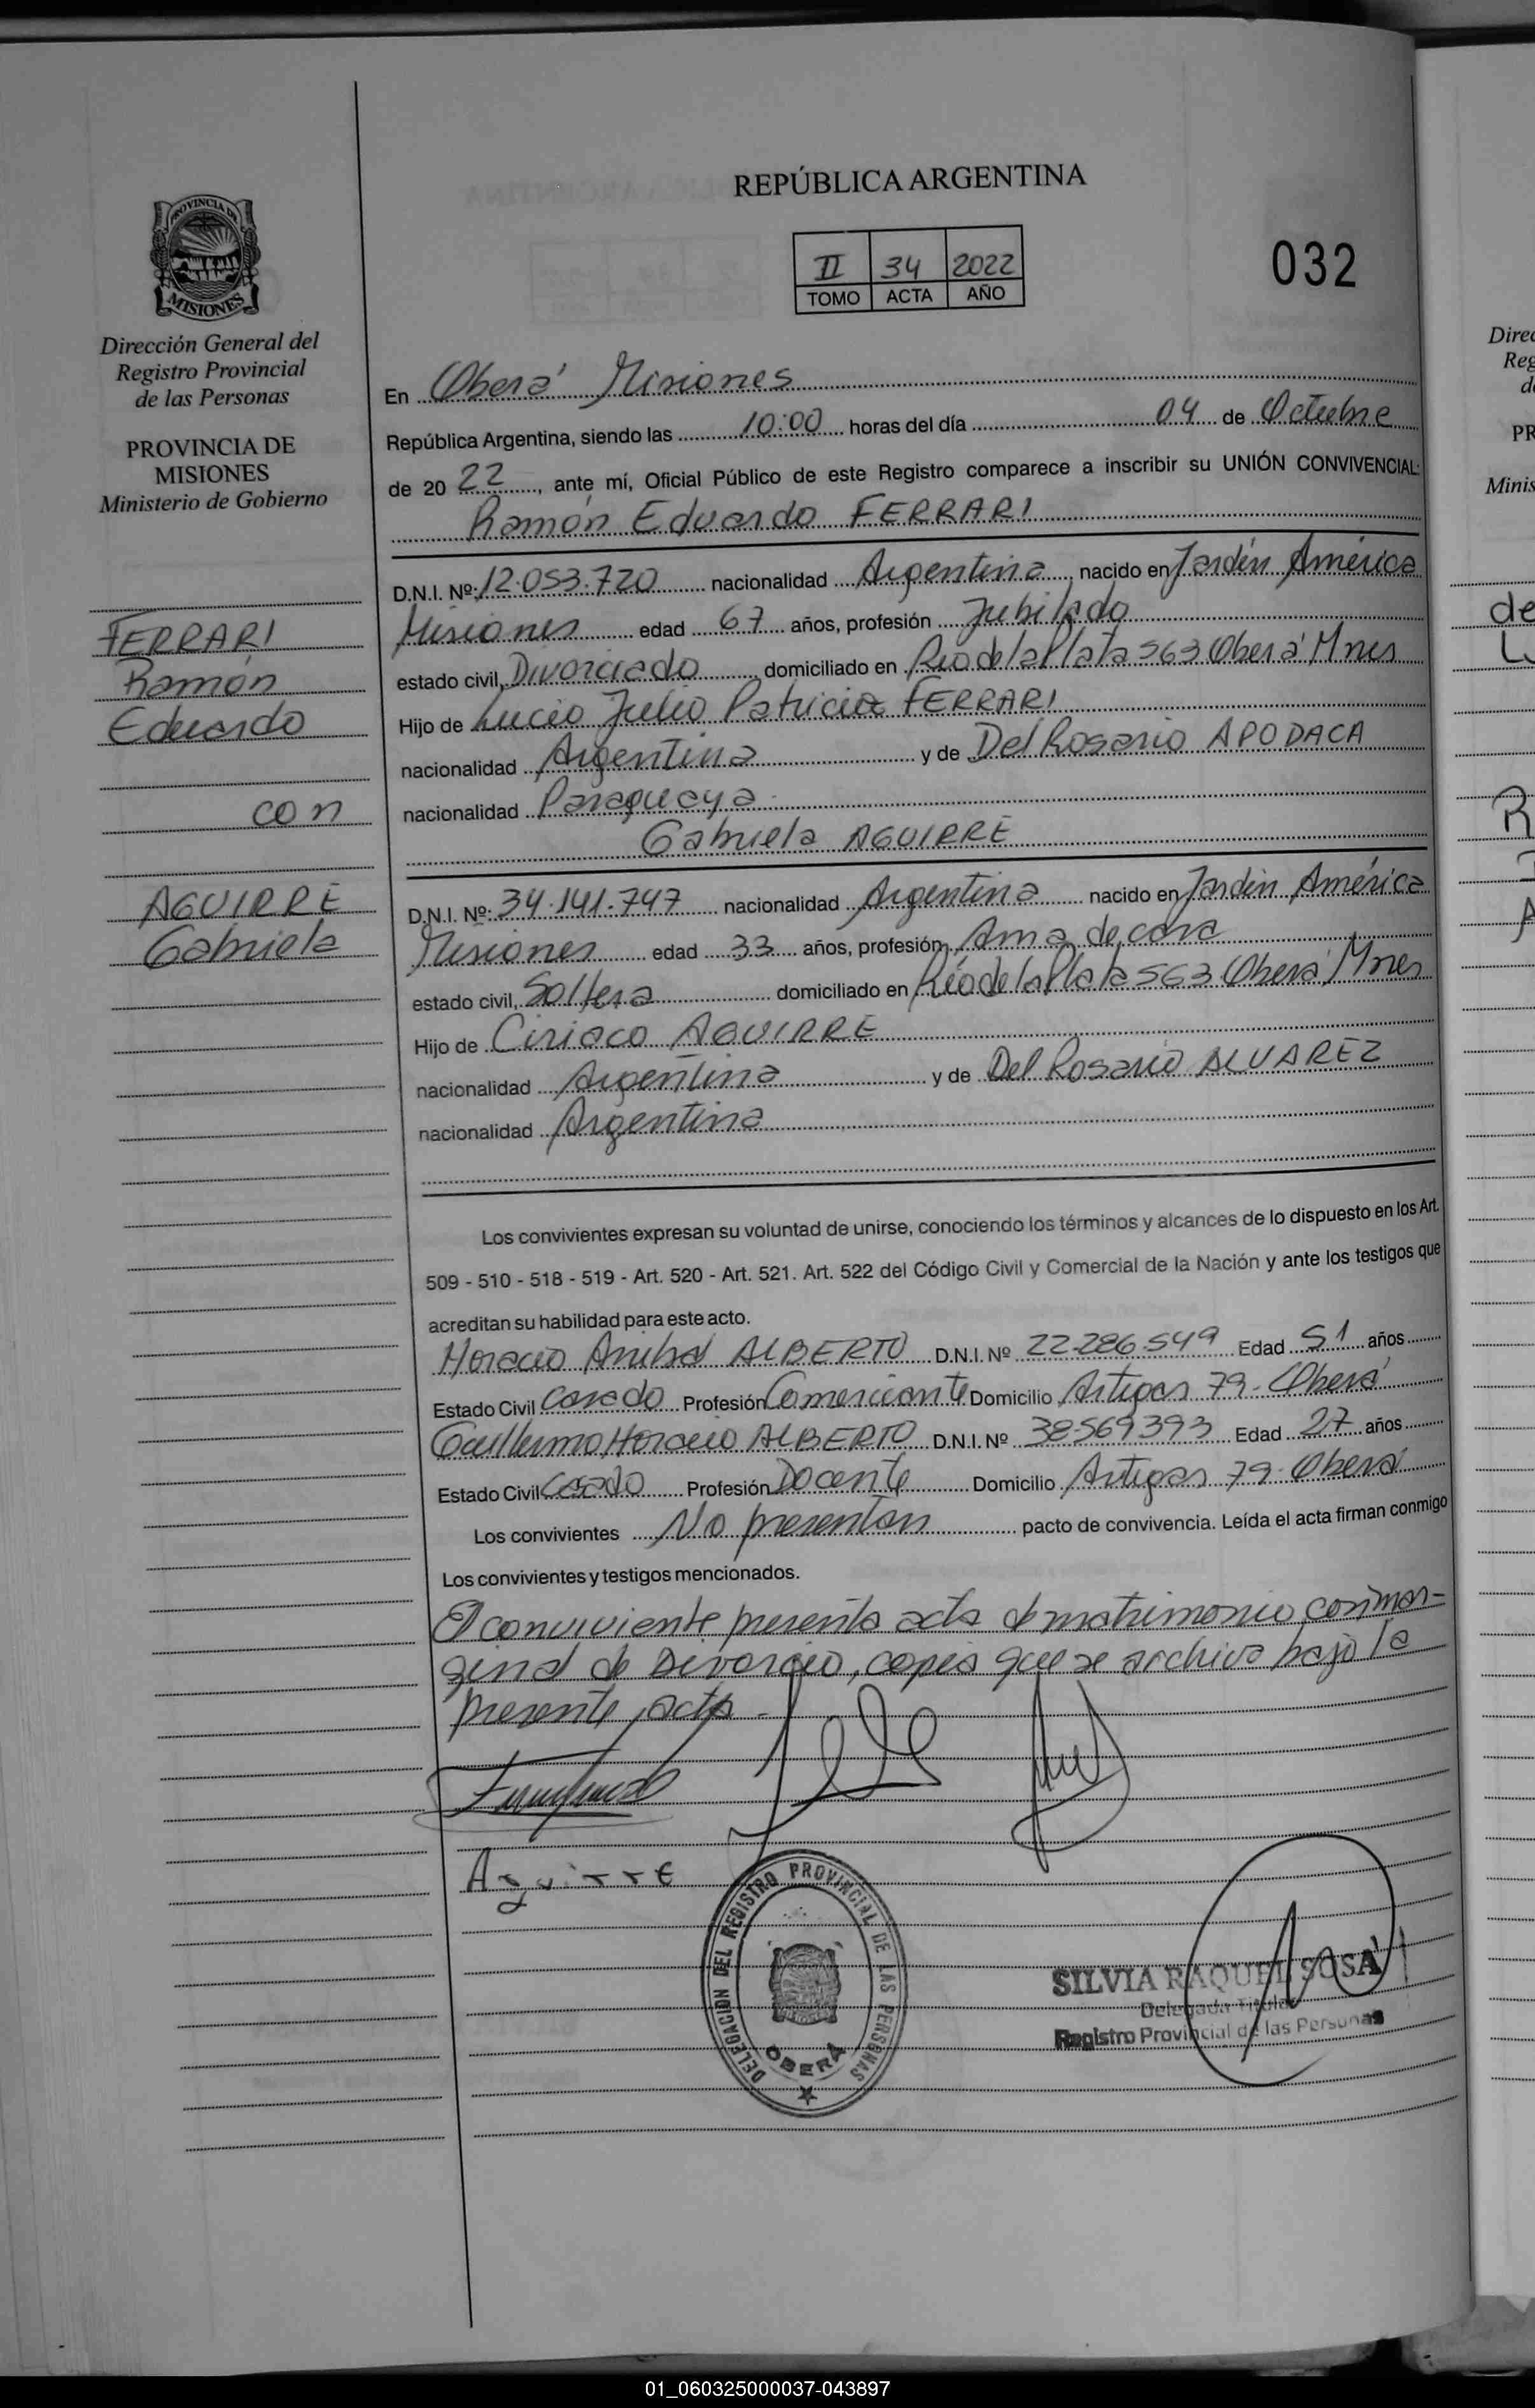 REPÚBLICA ARGENTINA
II 34 2022
TOMO ACTA AÑO
032
PROVINCIA DE
MISIONES
Dirección General del
Registro Provincial
de las Personas
PROVINCIA DE
MISIONES
Ministerio de Gobierno
FERRARI
Ramón
Eduardo
con
AGUIRRE
Gabriela
En Oberá Misiones
República Argentina, siendo las 10:00 horas del día 04 de Octubre
de 2022, ante mí, Oficial Público de este Registro comparece a inscribir su UNIÓN CONVIVENCIAL:
Ramón Eduardo FERRARI
D.N.I. Nº: 12.053.720 nacionalidad Argentina, nacido en Jardín América
Misiones edad 67 años, profesión Jubilado
estado civil, Divorciado domiciliado en Río de la Plata 563 Oberá Mnes
Hijo de Lucio Julio Patricio FERRARI
nacionalidad Argentina y de Del Rosario APODACA
nacionalidad Paraguaya
Gabriela AGUIRRE
D.N.I. Nº: 34.141.747 nacionalidad Argentina nacido en Jardín América
Misiones edad 33 años, profesión Ama de casa
estado civil, Soltera domiciliado en Río de la Plata 563 Oberá Mnes
Hijo de Ciriaco AGUIRRE
nacionalidad Argentina y de Del Rosario ALVAREZ
nacionalidad Argentina
Los convivientes expresan su voluntad de unirse, conociendo los términos y alcances de lo dispuesto en los Art.
509 - 510 - 518 - 519 - Art. 520 - Art. 521. Art. 522 del Código Civil y Comercial de la Nación y ante los testigos que
acreditan su habilidad para este acto.
Horacio Anibal ALBERTO D.N.I. Nº 22.286.549 Edad 51 años
Estado Civil Casado Profesión Comerciante Domicilio Artigas 79 - Oberá
Guillermo Horacio ALBERTO D.N.I. Nº 38.569393 Edad 27 años
Estado Civil Casado Profesión Docente Domicilio Artigas 79 - Oberá
Los convivientes No presentan pacto de convivencia. Leída el acta firman conmigo
Los convivientes y testigos mencionados.
El conviviente presenta acta de matrimonio con mar-
ginal de Divorcio, copia que se archiva bajo la
presente acta -
Aguirre
DELEGACION DEL REGISTRO PROVINCIAL DE LAS PERSONAS
OBERÁ
SILVIA RAQUEL SOSA
Delegada Titular
Registro Provincial de las Personas
01_060325000037-043897